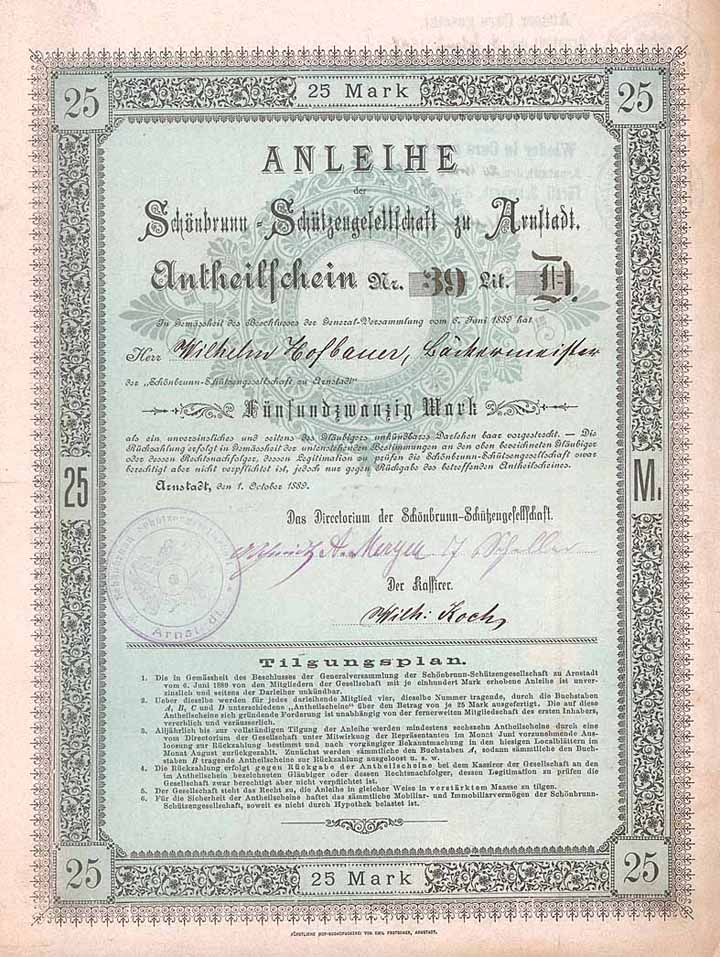 25 25 Mark 25
ANLEIHE
der
Schönbrunn-Schützengesellschaft zu Arnstadt.
Antheilschein Nr. 39 Lit. D.
In Gemässheit des Beschlusses der General-Versammlung vom 6. Juni 1889 hat
Herr Wilhelm Hofbauer, Bäckermeister
der „Schönbrunn-Schützengesellschaft zu Arnstadt"
Fünfundzwanzig Mark
als ein unverzinsliches und seitens des Gläubigers unkündbares Darlehen baar vorgestreckt. — Die
Rückzahlung erfolgt in Gemässheit der untenstehenden Bestimmungen an den oben bezeichneten Gläubiger
oder dessen Rechtsnachfolger, dessen Legitimation zu prüfen die Schönbrunn-Schützengesellschaft zwar
berechtigt aber nicht verpflichtet ist, jedoch nur gegen Rückgabe des betreffenden Antheilscheines.
Arnstadt, den 1. October 1889.
25 M.
Das Directorium der Schönbrunn-Schützengesellschaft.
A. Mergen
Der Kassirer.
Wilh. Koch
Arnstadt.
Tilgungsplan.
1. Die in Gemässheit des Beschlusses der Generalversammlung der Schönbrunn-Schützengesellschaft zu Arnstadt
vom 6. Juni 1889 von den Mitgliedern der Gesellschaft mit je einhundert Mark erhobene Anleihe ist unver-
zinslich und seitens der Darleiher unkündbar.
2. Ueber dieselbe werden für jedes darleihende Mitglied vier, dieselbe Nummer tragende, durch die Buchstaben
A, B, C und D unterschiedene „Antheilscheine" über den Betrag von je 25 Mark ausgefertigt. Die auf diese
Antheilscheine sich gründende Forderung ist unabhängig von der ferneren Mitgliedschaft des ersten Inhabers,
vererblich und veräusserlich.
3. Alljährlich bis zur vollständigen Tilgung der Anleihe werden mindestens sechszehn Antheilscheine durch eine
vom Directorium der Gesellschaft unter Mitwirkung der Repräsentanten im Monat Juni vorzunehmende Aus-
loosung zur Rückzahlung bestimmt und nach vorgängiger Bekanntmachung in den hiesigen Localblättern im
Monat August zurückgezahlt. Zunächst werden sämmtliche den Buchstaben A, sodann sämmtliche den Buch-
staben B tragende Antheilscheine zur Rückzahlung ausgeloost u. s. w.
4. Die Rückzahlung erfolgt gegen Rückgabe der Antheilscheine bei dem Kassirer der Gesellschaft an den
im Antheilschein bezeichneten Gläubiger oder dessen Rechtsnachfolger, dessen Legitimation zu prüfen die
Gesellschaft zwar berechtigt aber nicht verpflichtet ist.
5. Der Gesellschaft steht das Recht zu, die Anleihe in gleicher Weise in verstärktem Maasse zu tilgen.
6. Für die Sicherheit der Antheilscheine haftet das sämmtliche Mobiliar- und Immobiliarvermögen der Schönbrunn-
Schützengesellschaft, soweit es nicht durch Hypothek belastet ist.
25 25 Mark 25
FÜRSTLICHE HOF-BUCHDRUCKEREI VON EMIL FROTSCHER, ARNSTADT.